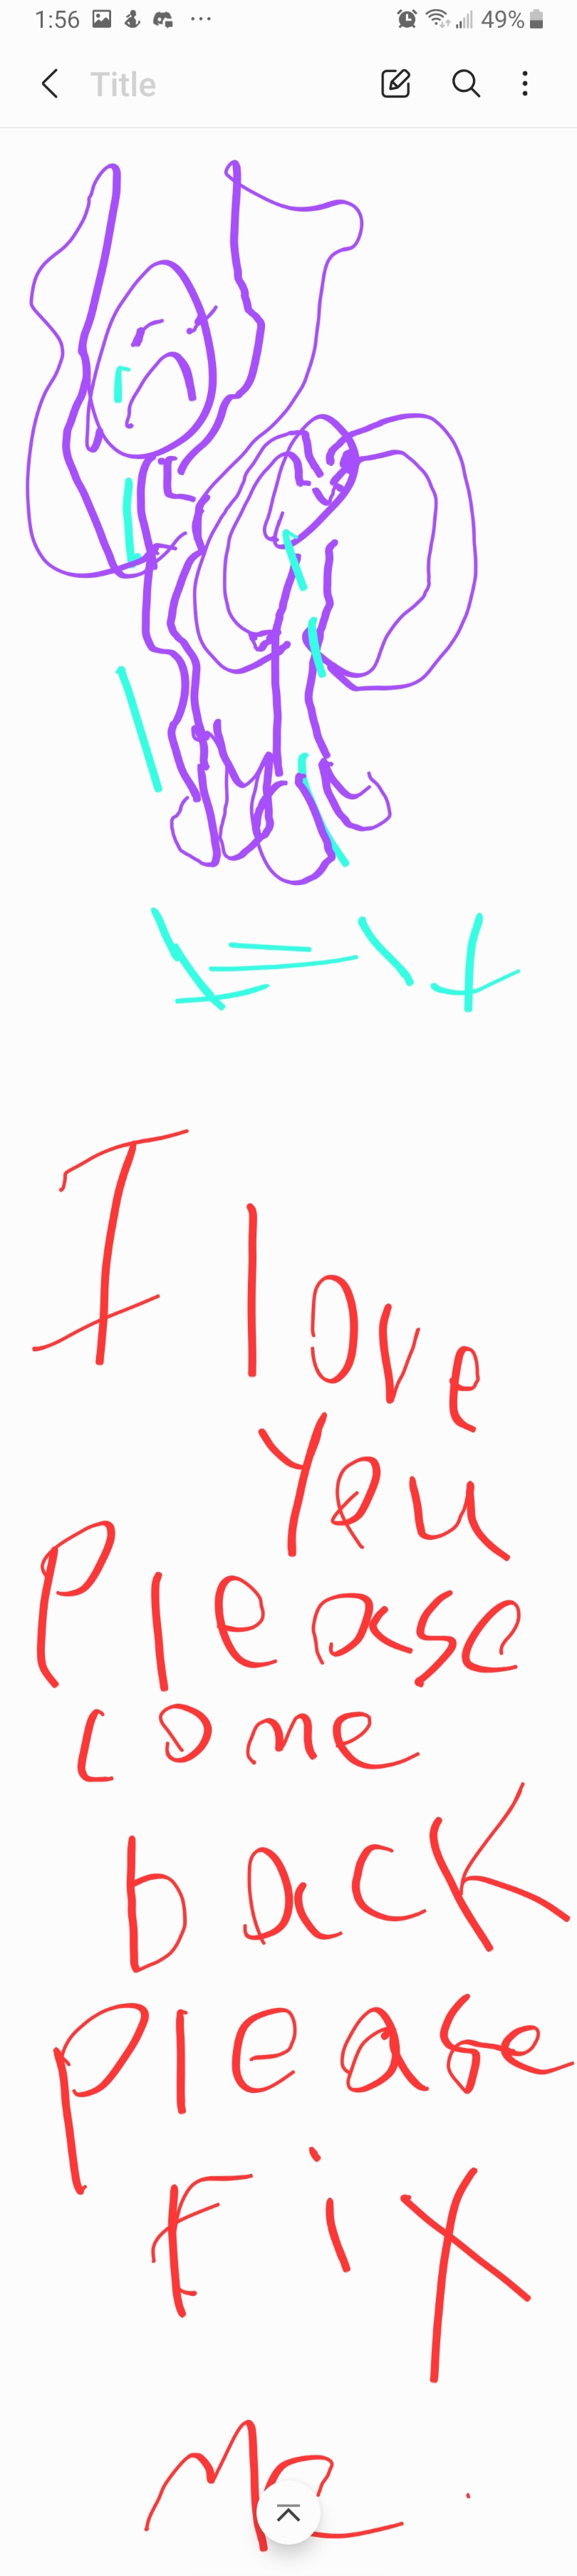 1:56 49%
Title
I love
You
Please
come
back
please
Fix
Me